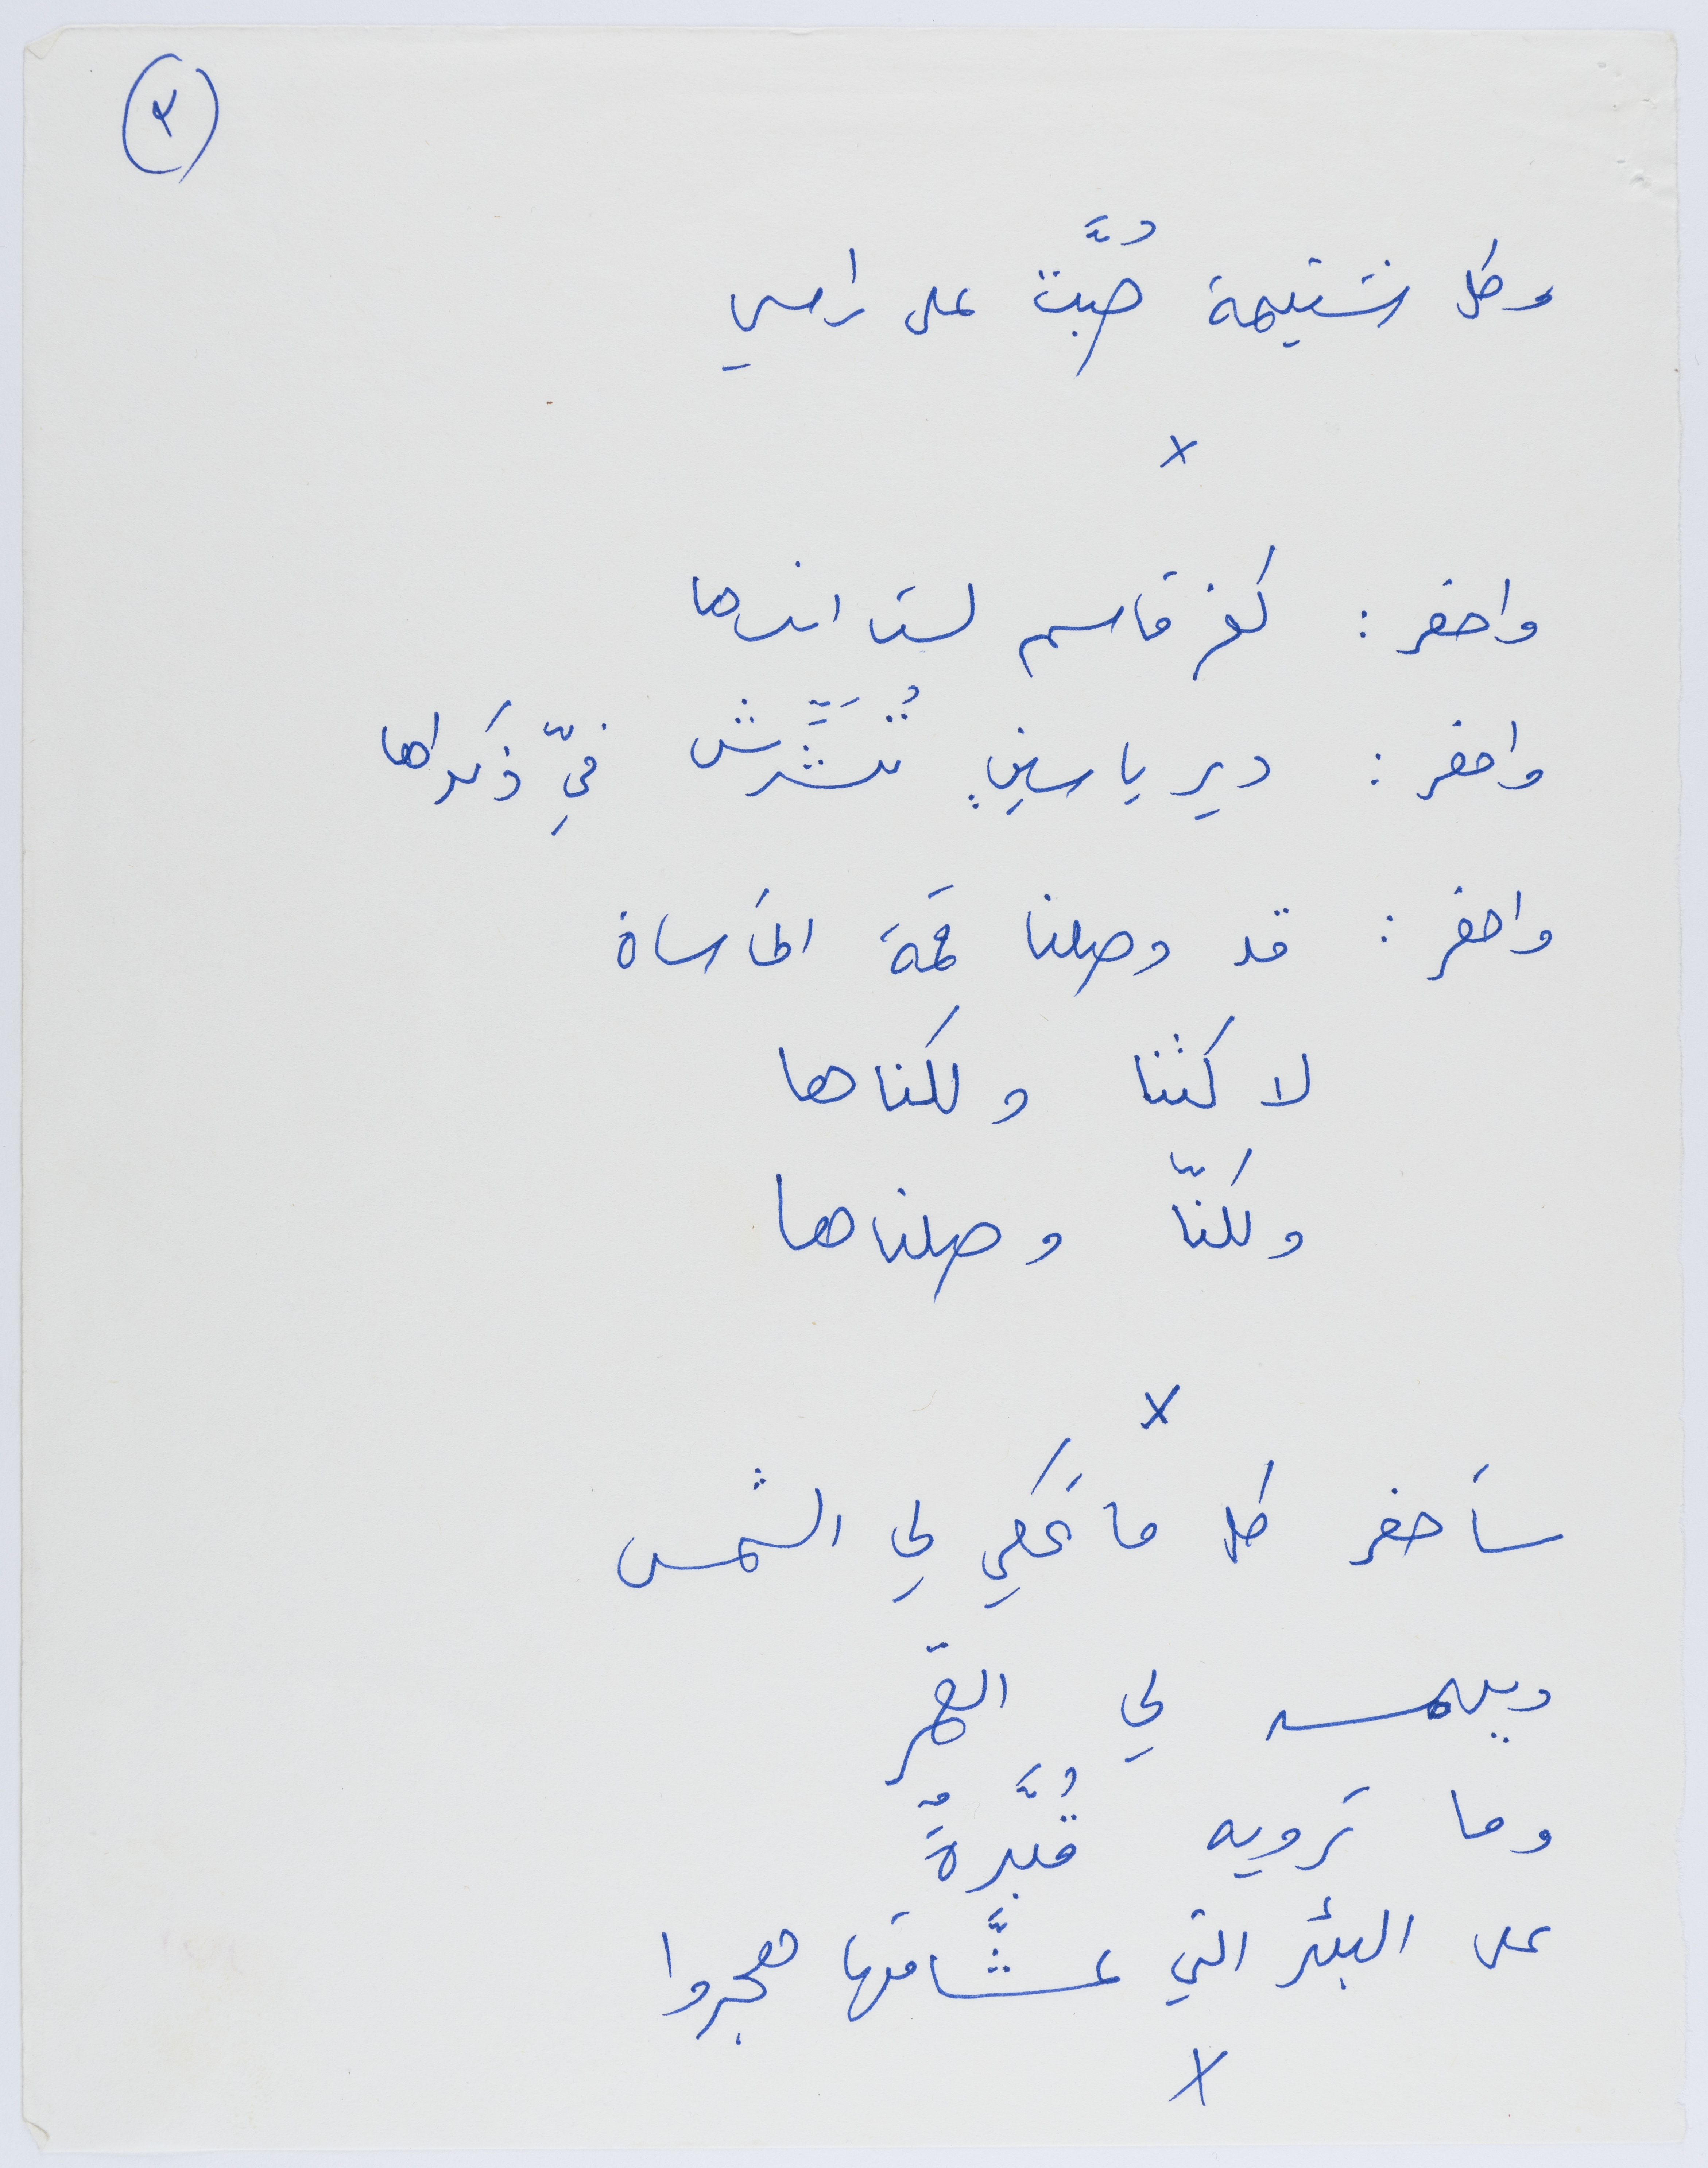 ٢
وكل شتيمة صُبَّت على راسي
x
واحفر : كفر قاسم لست انساها
واحفر : دير ياسين تُشَرِّش فيّ ذكراها
واحفر : قد وصلنا قمة المأساة
لاكتنا ولكناها
ولكنّا وصلناها
x
سأحفر كل ما تَحكي لي الشمس
ويهمسه لي القمر
وما ترويه قُبَّرةٌ
على البئر التي عشَّاقها هجروا
x